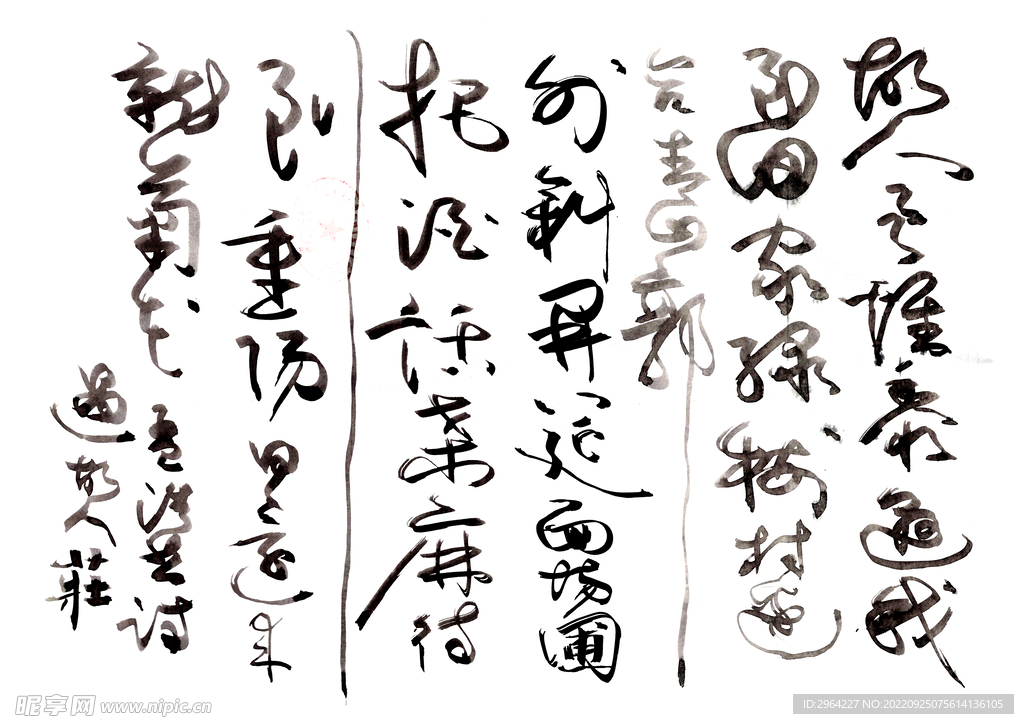 故人具雞黍邀我
至田家綠樹村邊
合青山郭
外斜開筵面場圃
把酒話桑麻待
到重陽日還來
就菊花
孟浩然詩
過故人莊
昵享网 www.nipic.cn
ID:2964227 NO:20220925075614136105